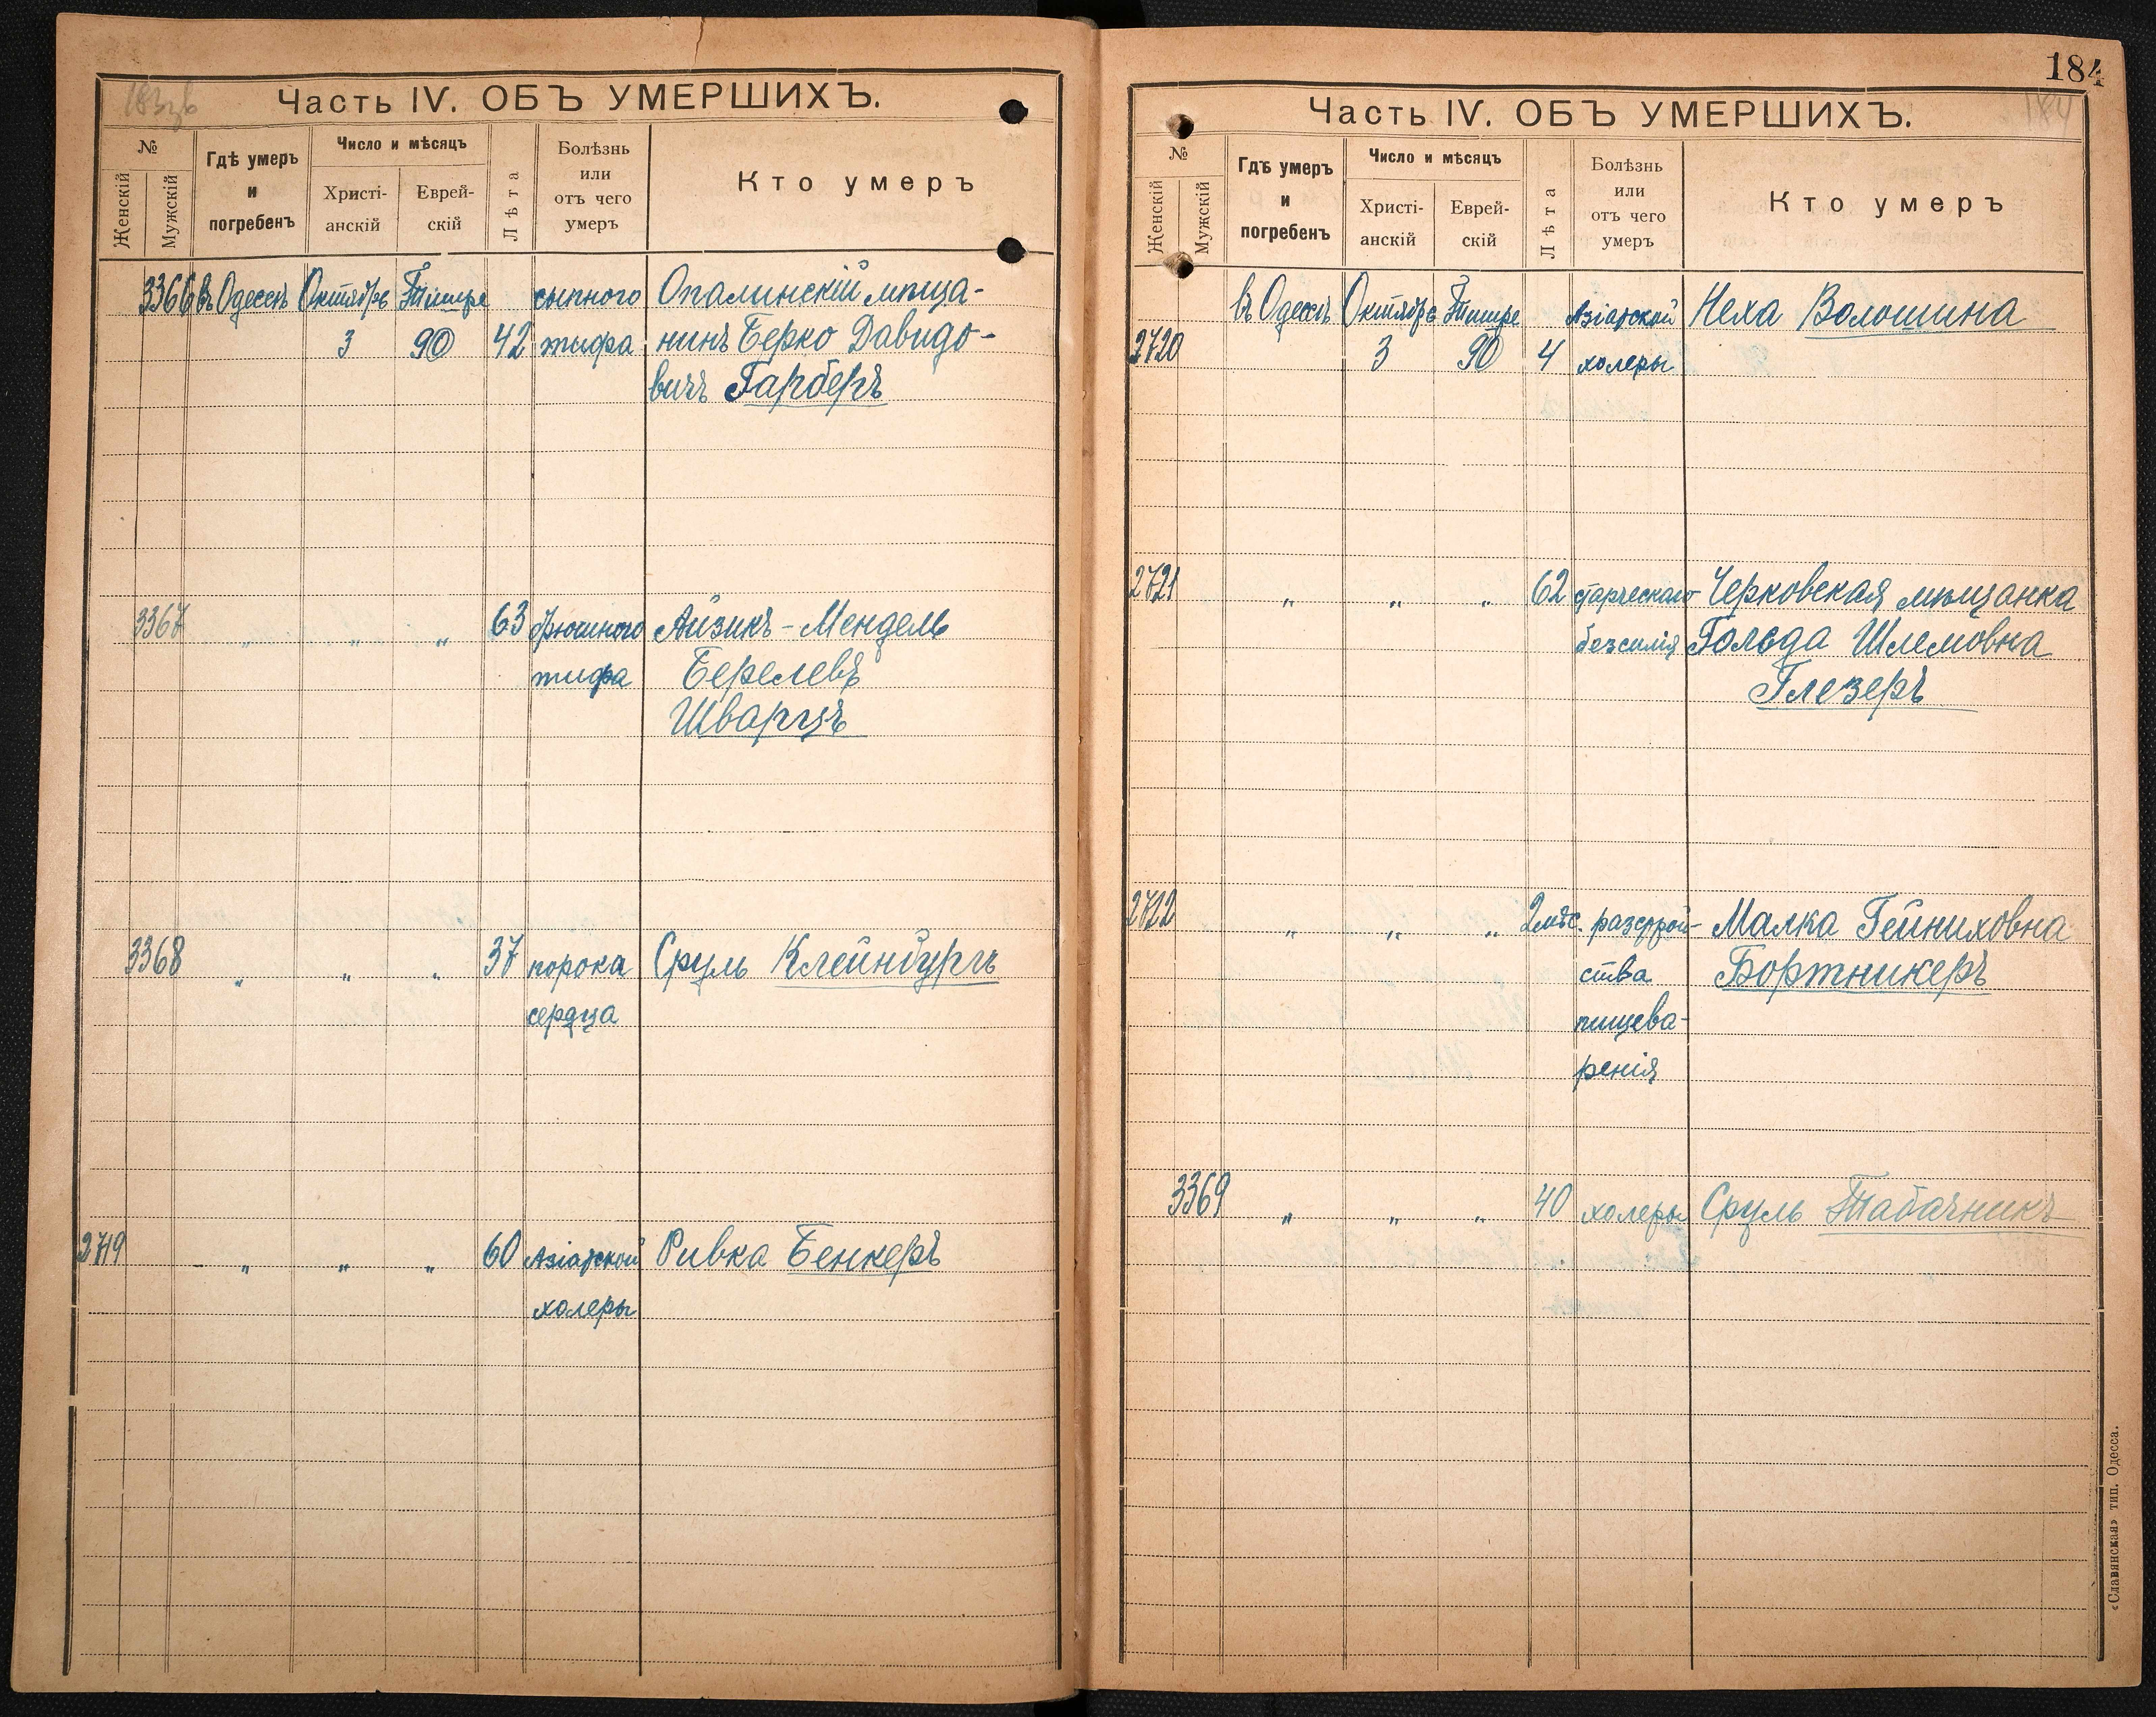 183об
Часть IV. ОБЪ УМЕРШИХЪ.
№
Женскій
Мужскій
Гдѣ умеръ и погребенъ
Число и мѣсяцъ
Христіанскій
Еврейскій
Лѣта
Болѣзнь или отъ чего умеръ
Кто умеръ
3366 въ Одессѣ Октябрь Тишре сыпного Опалинскій мѣща-
3 90 42 тифа нинъ Берко Давидо-
вичъ Гарберъ
3367 „ „ „ 63 брюшного Айзикъ-Мендель
тифа Берелевъ
Шварцъ
3368 „ „ „ 37 порока Сруль Клейнбургъ
сердца
2719 „ „ „ 60 Азіатской Ривка Бенкеръ
холеры
184
184
Часть IV. ОБЪ УМЕРШИХЪ.
№
Женскій
Мужскій
Гдѣ умеръ и погребенъ
Число и мѣсяцъ
Христіанскій
Еврейскій
Лѣта
Болѣзнь или отъ чего умеръ
Кто умеръ
въ Одессѣ Октябрь Тишре Азіатской Неха Волошина
2720 3 90 4 холеры
2721 „ „ „ 62 старческаго Черковская мѣщанка
безсилія Гольда Шлемовна
Глезеръ
2722 „ „ „ 2 мѣс. разстрой- Малка Гейниховна
ства Бортникеръ
пищева-
ренія
3369 „ „ „ 40 холеры Сруль Табачникъ
«Славянская» тип. Одесса.